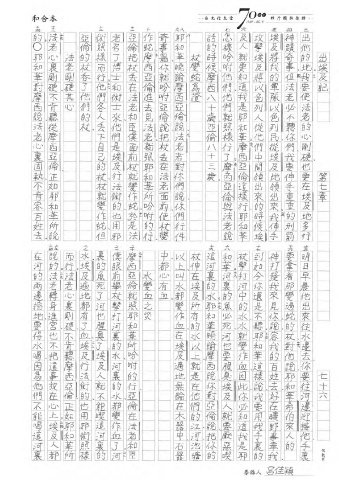 和合本
出埃及記 第七章 七十六
出他們的地我要使法老的心剛硬也要在埃及地多行
神蹟奇事但法老必不聽你們我要伸手重重的刑罰
埃及將我的軍隊以色列民從埃及地領出來我伸手
攻擊埃及將以色列人從他們中間領出來的時候埃
及人就要知道我是耶和華摩西亞倫這樣行耶和華
怎樣吩咐他們他們就照樣行了摩西亞倫與法老說
話的時候摩西八十歲亞倫八十三歲
杖變蛇為證
耶和華曉諭摩西亞倫說法老若對你們說你們行件
奇事罷你就吩咐亞倫說把杖丟在法老面前使杖變
作蛇摩西亞倫進去見法老就照耶和華所吩咐的行
亞倫把杖丟在法老和臣僕面前杖就變作蛇於是法
老召了博士和術士來他們是埃及行法術的也用邪
術照樣而行他們各人丟下自己的杖杖就變作蛇但
亞倫的杖吞了他們的杖
法老剛硬其心
法老心裏剛硬不肯聽從摩西亞倫正如耶和華所說
的○耶和華對摩西說法老心裏固執不肯容百姓去
明日早晨他出來往水邊去你要往河邊迎接他手裏
要拿着那變過蛇的杖對他說耶和華希伯來人的
神打發我來見你說容我的百姓去好在曠野事奉我
到如今你還是不聽耶和華這樣說我要用我手裏的
杖擊打河中的水水就變作血因此你必知道我是耶
和華河裏的魚必死河也要腥臭埃及人就要厭惡喫
這河裏的水耶和華曉諭摩西說你對亞倫說把你的
杖伸在埃及所有的水以上就是在他們的江河池塘
以上叫水都變作血在埃及遍地無論在木器中石器
中都必有血
水變血之災
摩西亞倫就照耶和華所吩咐的行亞倫在法老和臣
僕眼前舉杖擊打河裏的水河裏的水都變作血了河
裏的魚死了河也腥臭了埃及人就不能喫這河裏的
水埃及遍地都有了血埃及行法術的也用邪術照樣
而行法老心裏剛硬不肯聽摩西亞倫正如耶和華所
說的法老轉身進宮也不把這事放在心上埃及人都
在河的兩邊挖地要得水喝因為他們不能喝這河裏